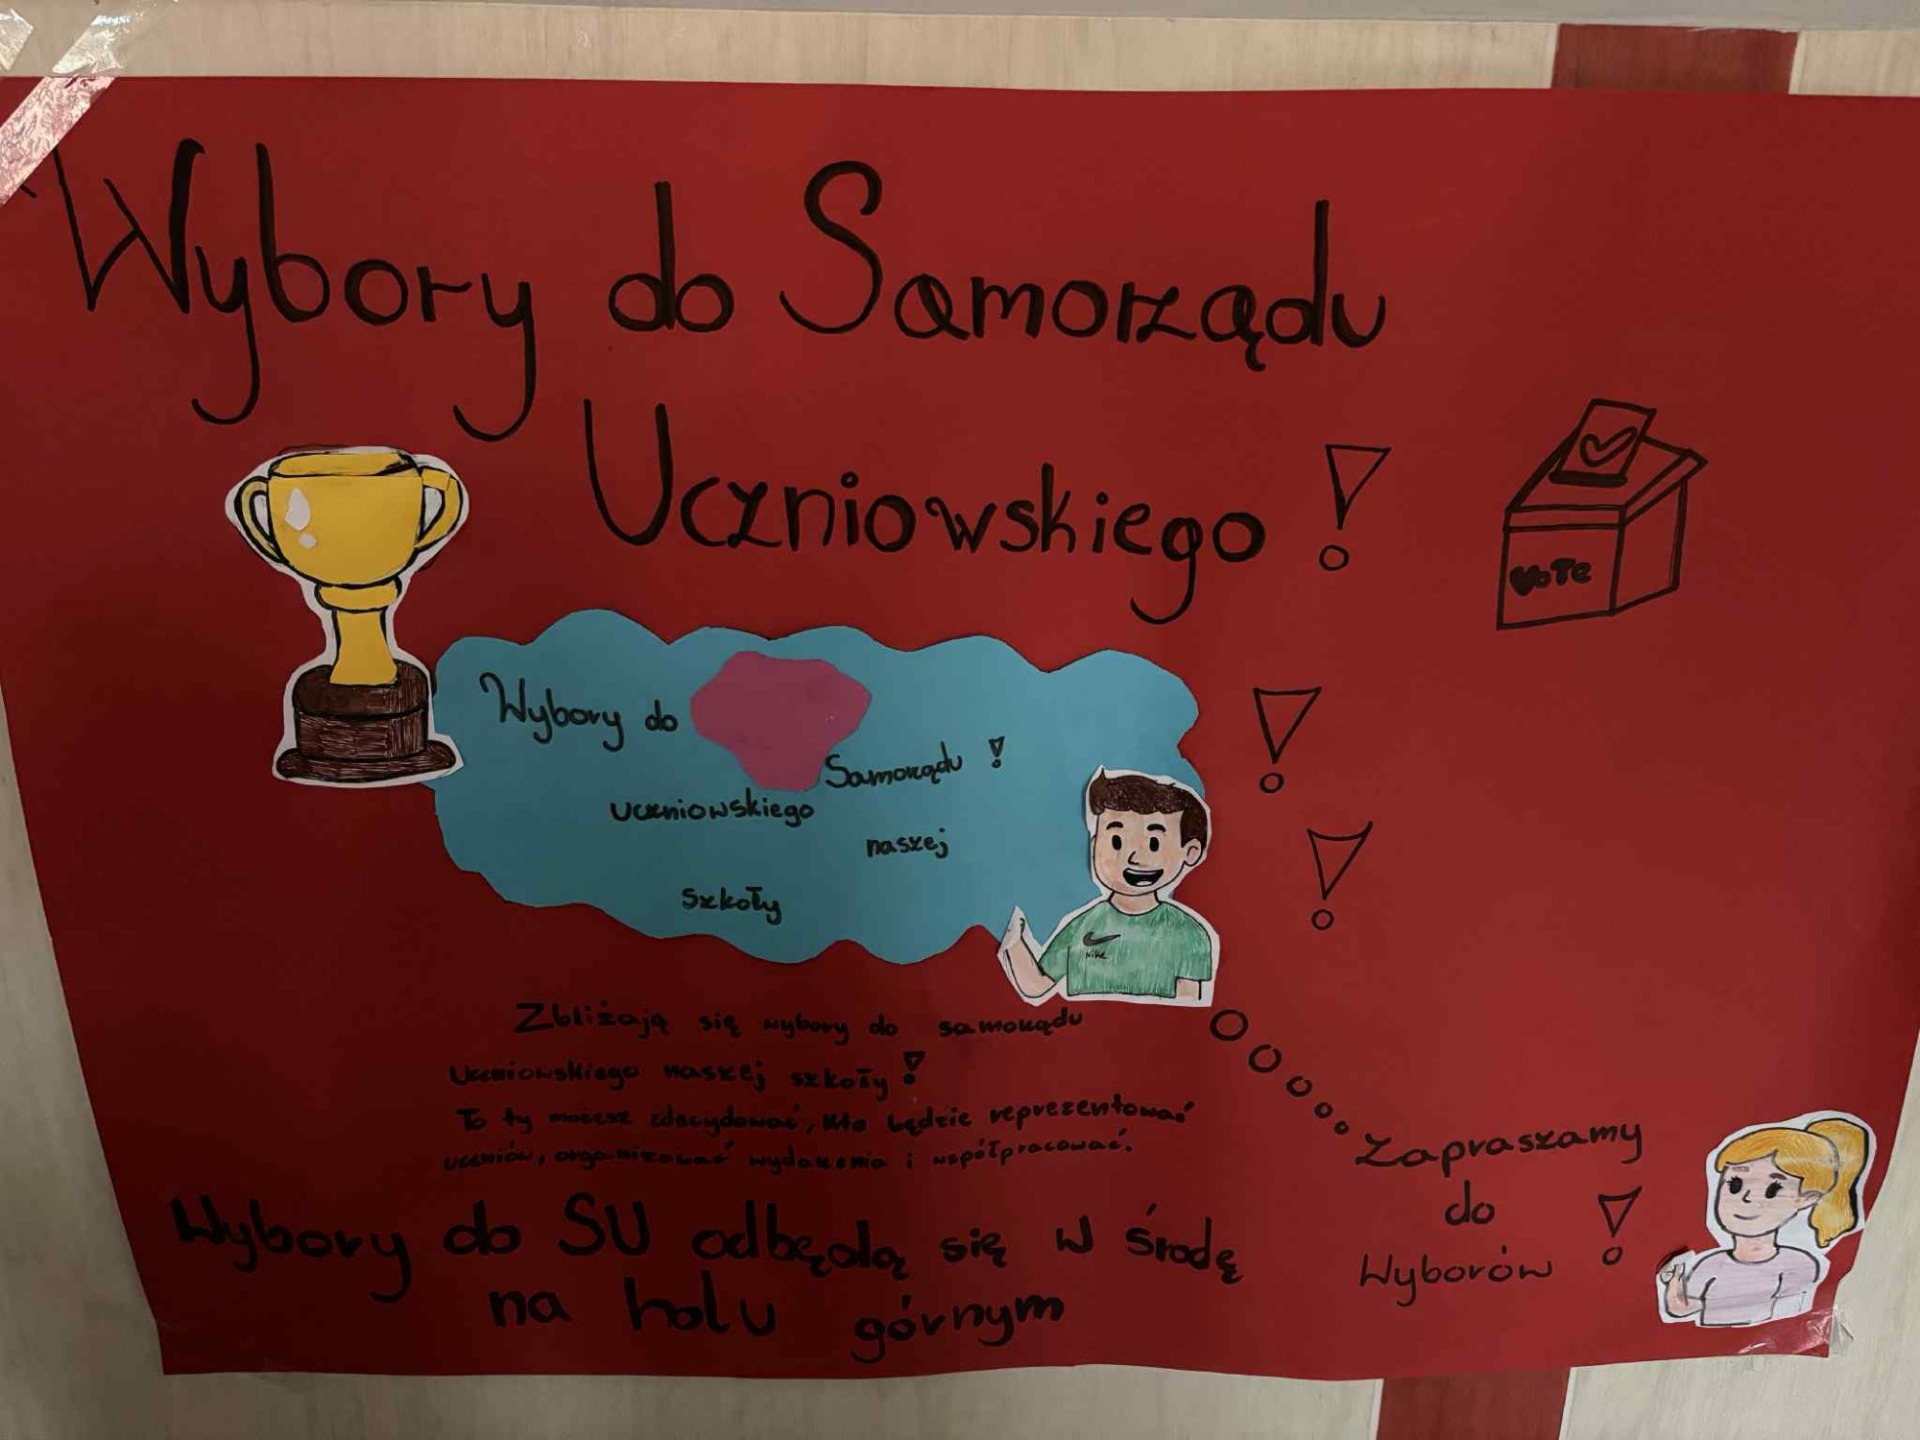 Wybory do Samorządu
Uczniowskiego!
VOTE
Wybory do
Samorządu !
uczniowskiego
naszej
szkoły
Nike
Zbliżają się wybory do samorządu
Uczniowskiego naszej szkoły !
To ty możesz zdecydować, kto będzie reprezentować
uczniów, organizować wydarzenia i współpracować.
Wybory do SU odbędą się w środę
na holu górnym
Zapraszamy
do
Wyborów !